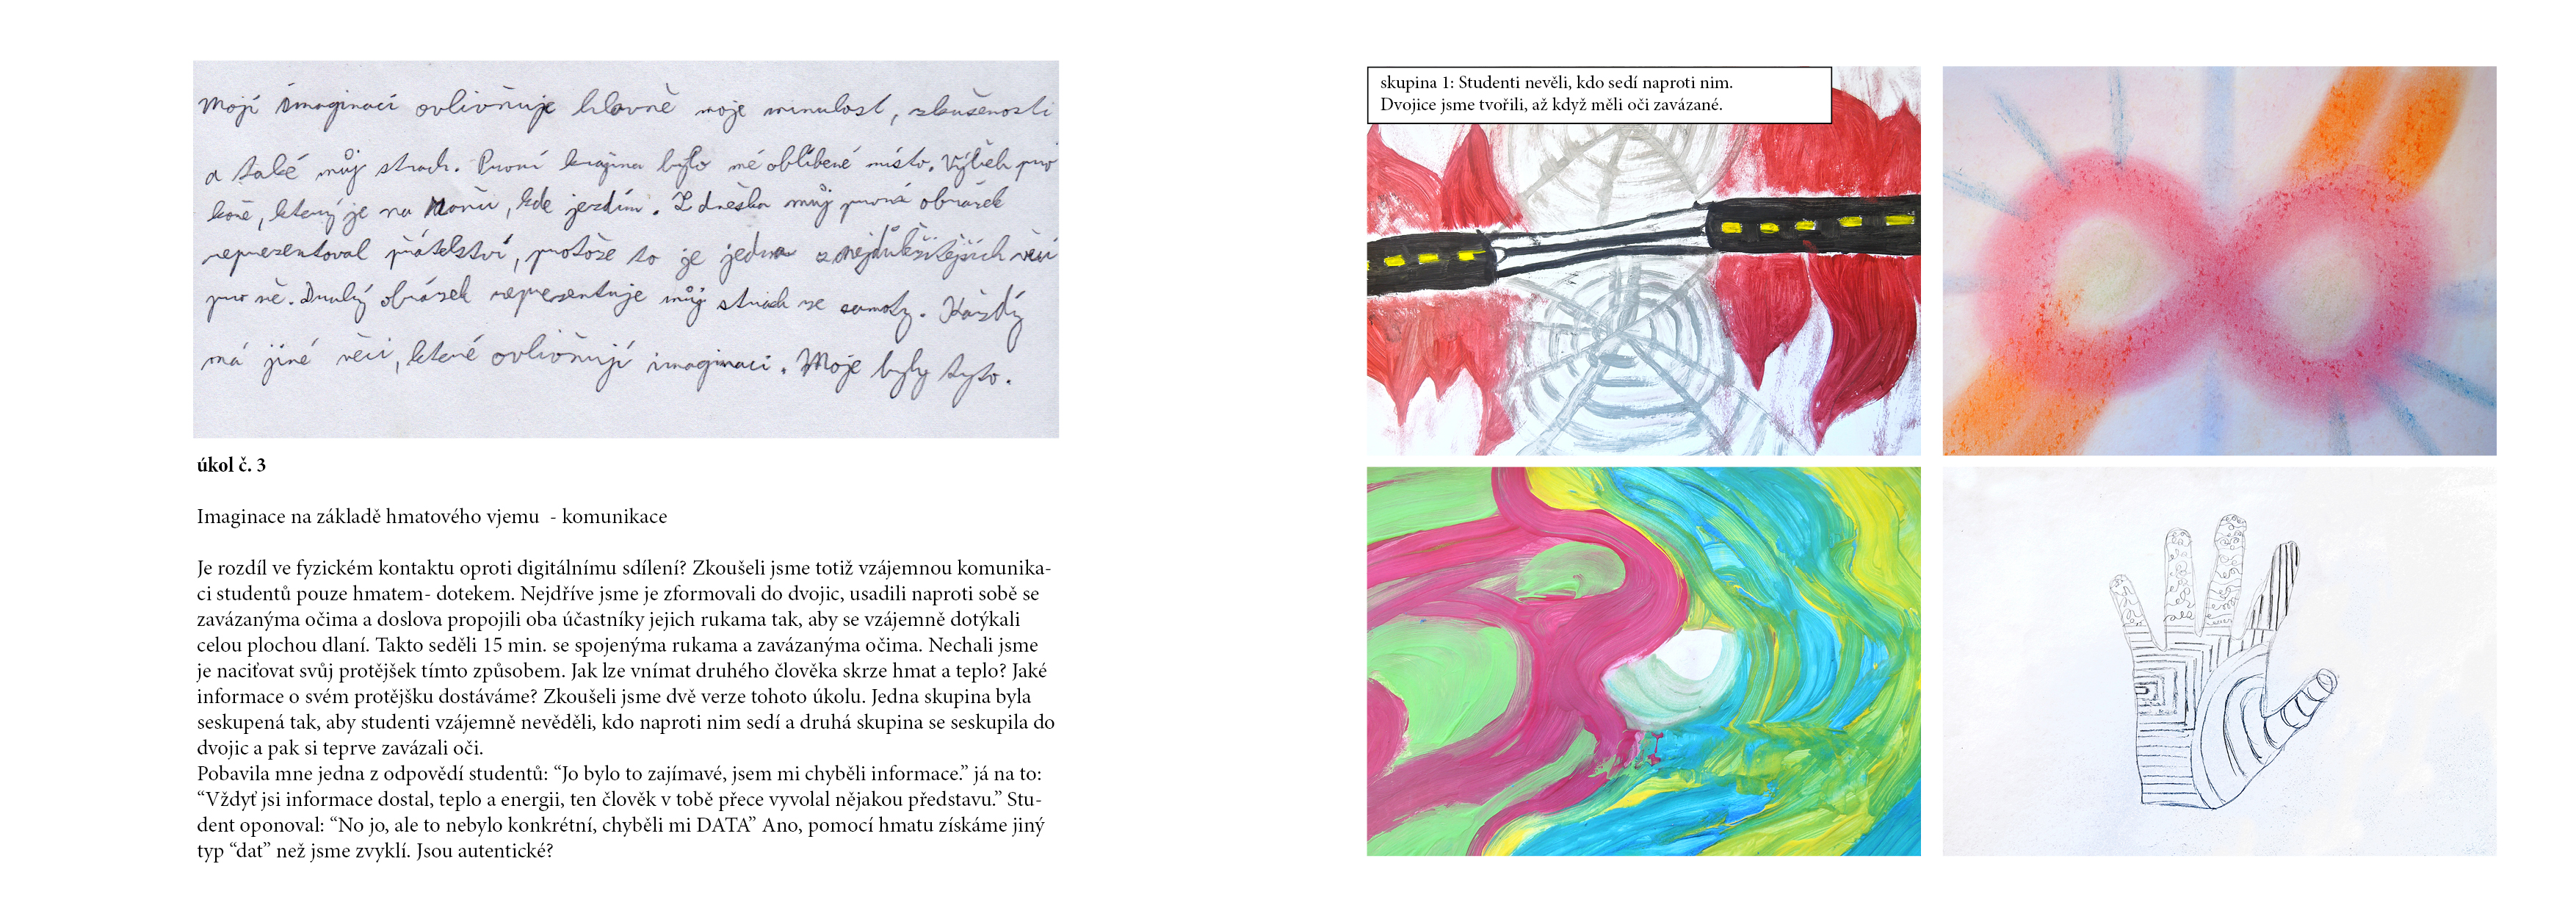 Mojí imaginaci ovlivňuje hlavně moje minulost, zkušenosti
a také můj strach. První krajina bylo mé oblíbené místo. Výběh pro
koně, který je na                 , kde jezdím. Z dneška můj první obrázek
reprezentoval přátelství, protože to je jedna z nejdůležitějších věcí
pro mě. Druhý obrázek reprezentuje můj strach ze samoty. Každý
má jiné věci, které ovlivňují imaginaci. Moje byly tyto.
úkol č. 3
Imaginace na základě hmatového vjemu - komunikace
Je rozdíl ve fyzickém kontaktu oproti digitálnímu sdílení? Zkoušeli jsme totiž vzájemnou komunika-
ci studentů pouze hmatem- dotekem. Nejdříve jsme je zformovali do dvojic, usadili naproti sobě se
zavázanýma očima a doslova propojili oba účastníky jejich rukama tak, aby se vzájemně dotýkali
celou plochou dlaní. Takto seděli 15 min. se spojenýma rukama a zavázanýma očima. Nechali jsme
je naciťovat svůj protějšek tímto způsobem. Jak lze vnímat druhého člověka skrze hmat a teplo? Jaké
informace o svém protějšku dostáváme? Zkoušeli jsme dvě verze tohoto úkolu. Jedna skupina byla
seskupená tak, aby studenti vzájemně nevěděli, kdo naproti nim sedí a druhá skupina se seskupila do
dvojic a pak si teprve zavázali oči.
Pobavila mne jedna z odpovědí studentů: “Jo bylo to zajímavé, jsem mi chyběli informace.” já na to:
“Vždyť jsi informace dostal, teplo a energii, ten člověk v tobě přece vyvolal nějakou představu.” Stu-
dent oponoval: “No jo, ale to nebylo konkrétní, chyběli mi DATA” Ano, pomocí hmatu získáme jiný
typ “dat” než jsme zvyklí. Jsou autentické?
skupina 1: Studenti nevěli, kdo sedí naproti nim.
Dvojice jsme tvořili, až když měli oči zavázané.